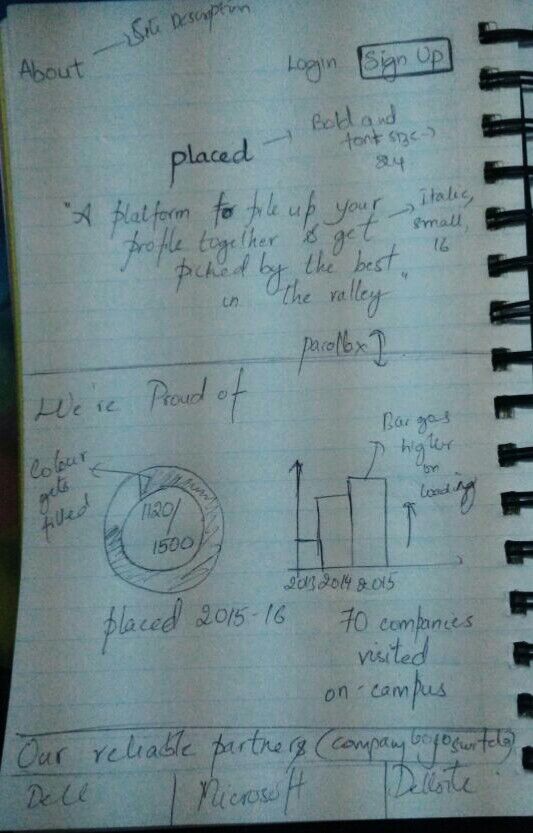 About → Site Description
Login Sign Up
placed → Bold and
font size →
24
"A platform to pile up your
profile together & get
picked by the best
in the valley"
→ Italic,
small,
16
We're Proud of
Colour
gets
filled
1120/
1500
placed 2015-16
Bar goes
higher
on
loading
2013 2014 2015
70 companies
visited
on-campus
Our reliable partners (company logo
Dell | Microsoft | Delloite